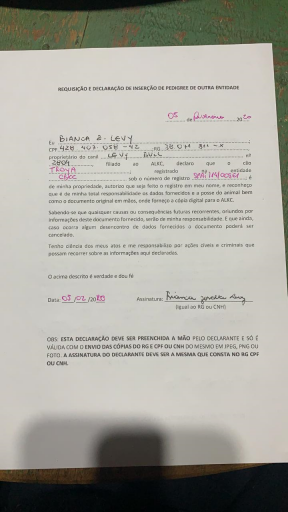 REQUISIÇÃO E DECLARAÇÃO DE INSERÇÃO DE PEDIGREE DE OUTRA ENTIDADE
05 de fevereiro 2020
Eu BIANCA Z. LEVY
CPF 428 407 058-42 RG
proprietário do canil LEVY BULL nº
2804 filiado ao ALRC, declaro que o cão
TROYA registrado na entidade
CBOC sob o número de registro é
de minha propriedade, autorizo que seja feito o registro em meu nome, e reconheço
que é de minha total responsabilidade os dados fornecidos e a posse do animal bem
como o documento original em mãos, onde forneço a cópia digital para o ALRC.
Sabendo-se que quaisquer causas ou consequências futuras recorrentes, oriundos por
informações deste documento fornecido, serão de minha responsabilidade. E que ainda,
caso ocorra algum desencontro de dados fornecidos o documento poderá ser
cancelado.
Tenho ciência dos meus atos e me responsabilizo por ações cíveis e criminais que
possam recorrer sobre as informações aqui declaradas.
O acima descrito é verdade e dou fé
Data: 05/02/2020 Assinatura: Bianca Levy
(Igual ao RG ou CNH)
OBS: ESTA DECLARAÇÃO DEVE SER PREENCHIDA A MÃO PELO DECLARANTE E SÓ É
VÁLIDA COM O ENVIO DAS CÓPIAS DO RG E CPF OU CNH DO MESMO EM JPEG, PNG OU
FOTO. A ASSINATURA DO DECLARANTE DEVE SER A MESMA QUE CONSTA NO RG CPF
OU CNH.